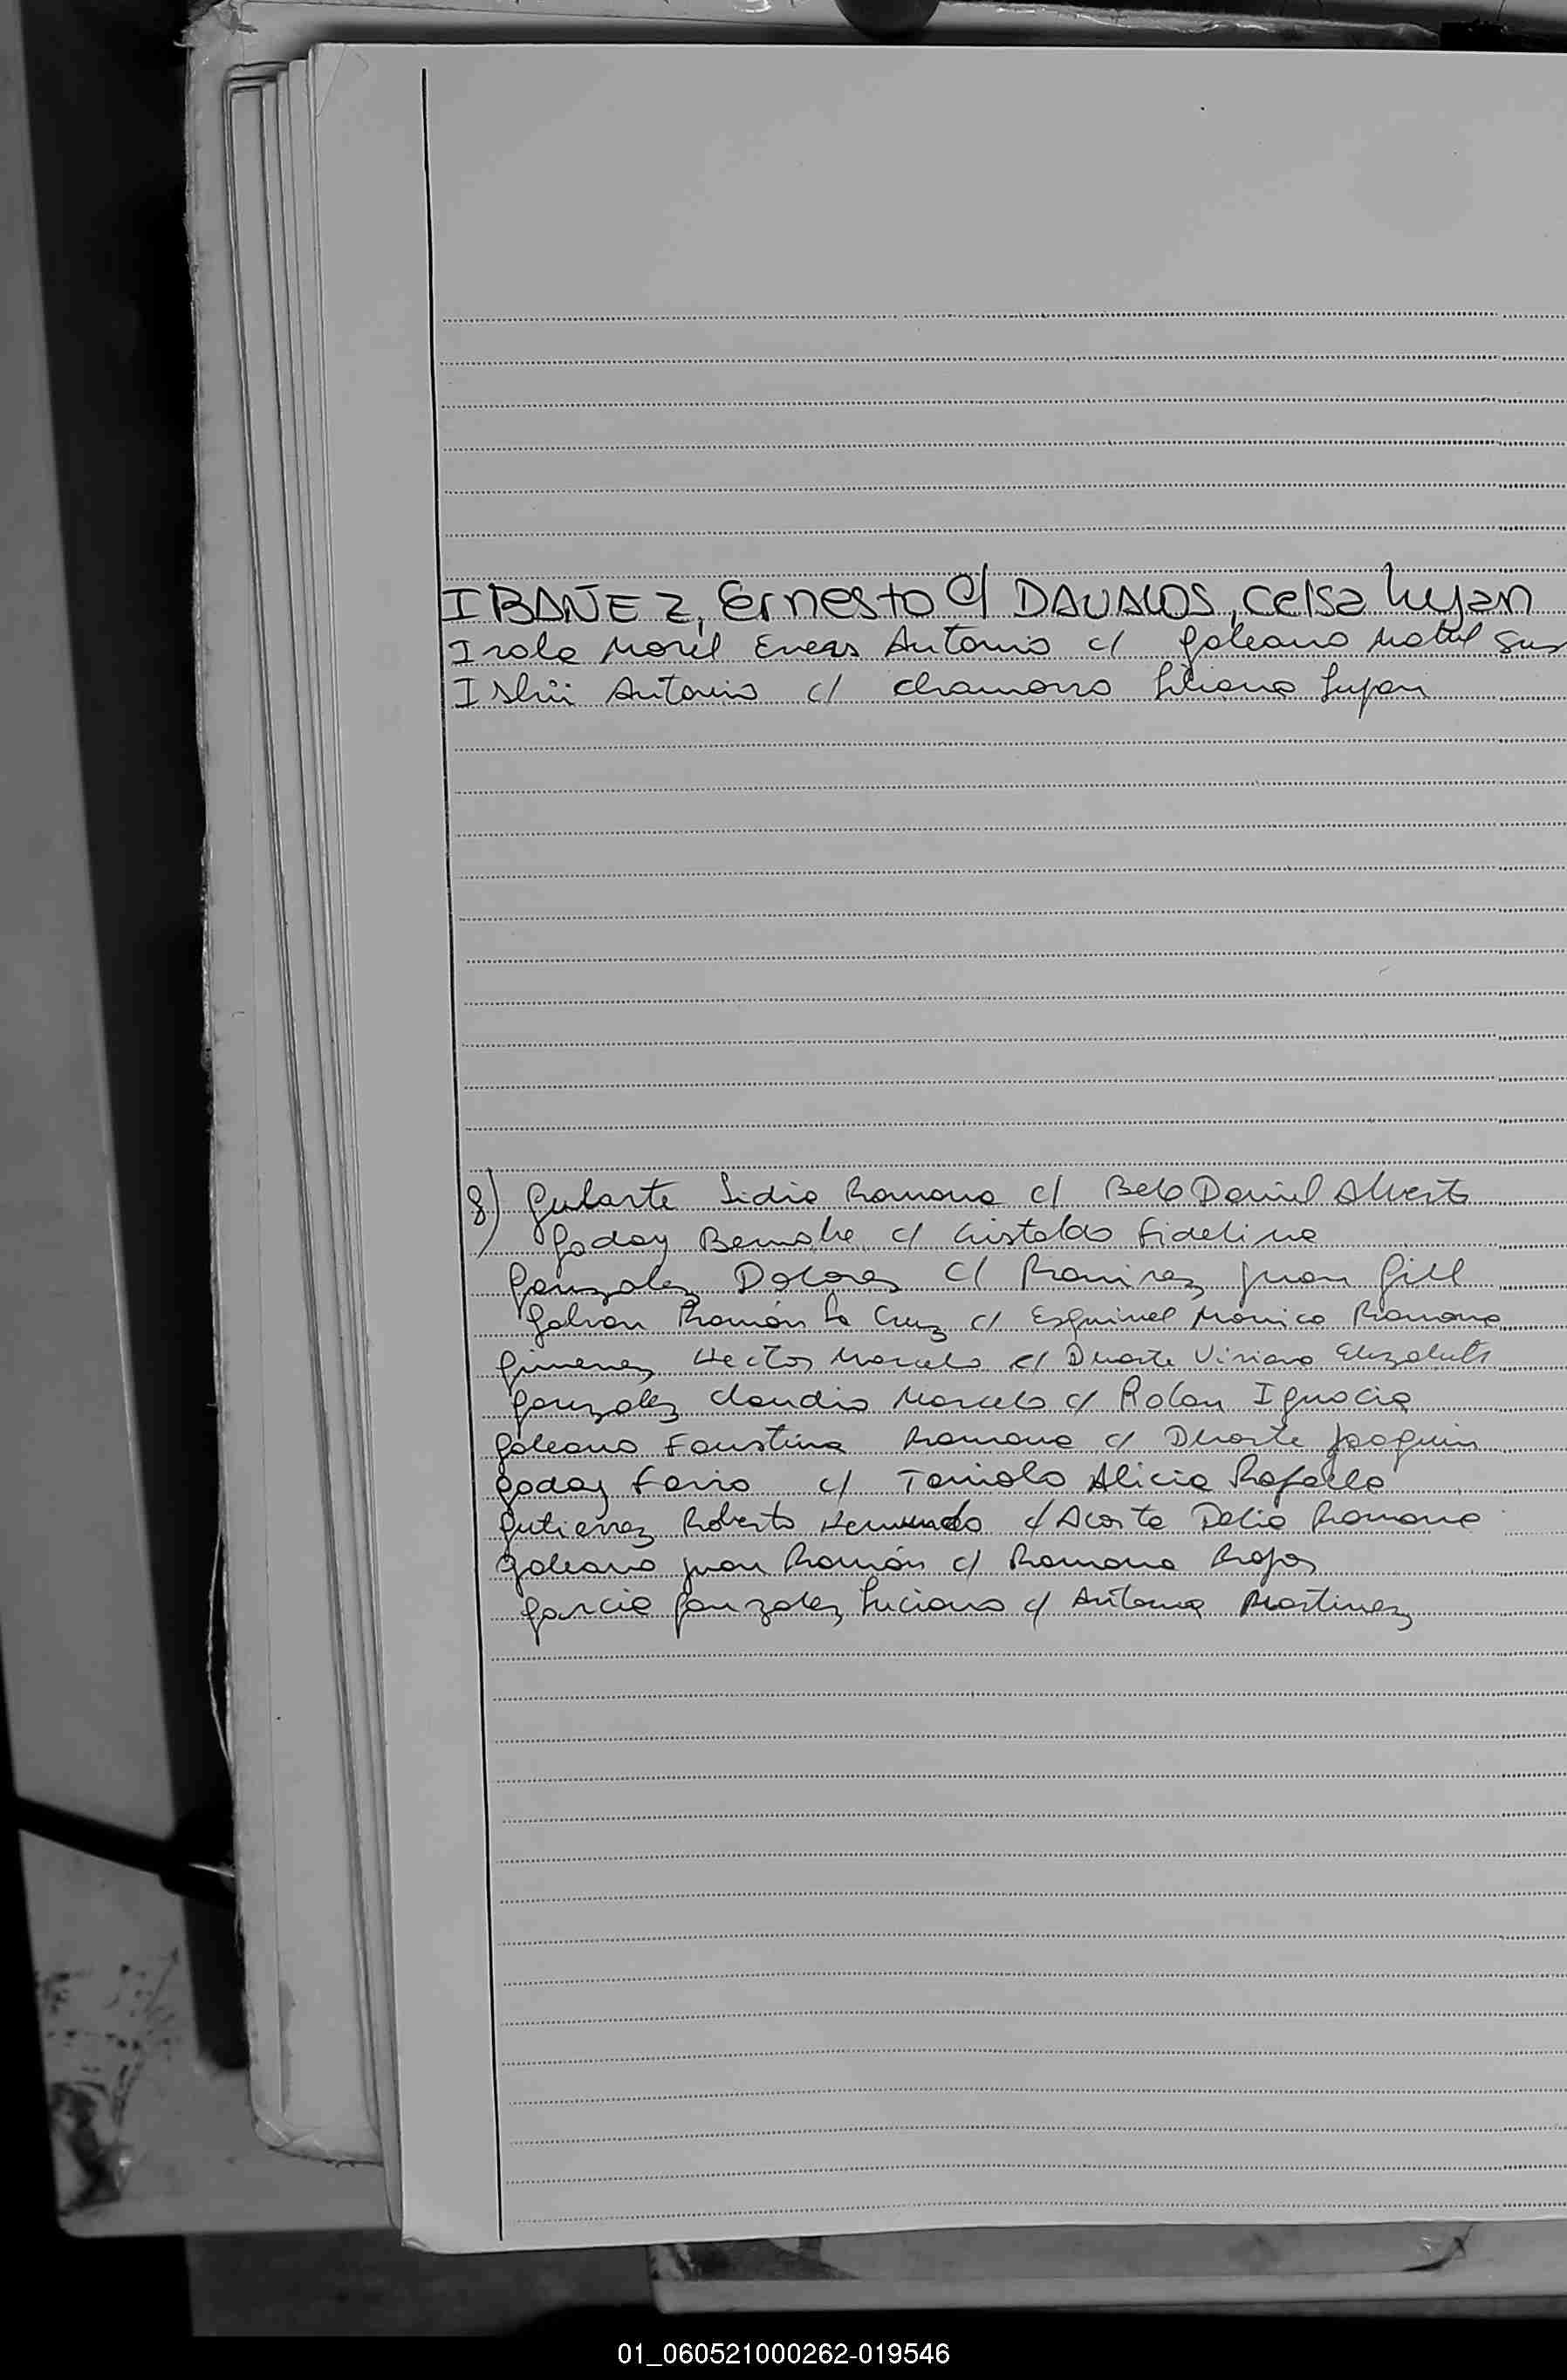 IBAÑEZ, Ernesto c/ DAVALOS, Celsa Lujan
Irala Morel Eneas Antonio c/ Galeano Mabel Sus
Ishii Antonio c/ Chamorro Liliana Lujan
8) Gularte Lidia Ramona c/ Belo Daniel Alberto
Godoy Bernabe c/ Cristaldo Fidelina
Gonzalez Dolores c/ Ramirez Juan Gill
Galvan Ramón La Cruz c/ Esquivel Monica Ramona
Gimenez Hector Marcelo c/ Duarte Viviana Elizabeth
Gonzalez Claudio Marcelo c/ Rolon Ignacia
Galeano Faustina Ramona c/ Duarte Joaquin
Godoy c/ Alicia Rafaela
Gutierrez Roberto c/ Acosta Delia Ramona
Galeano Juan Ramón c/ Ramona Rojas
Garcia Gonzalez Luciano c/ Antonia Martinez
01_060521000262-019546